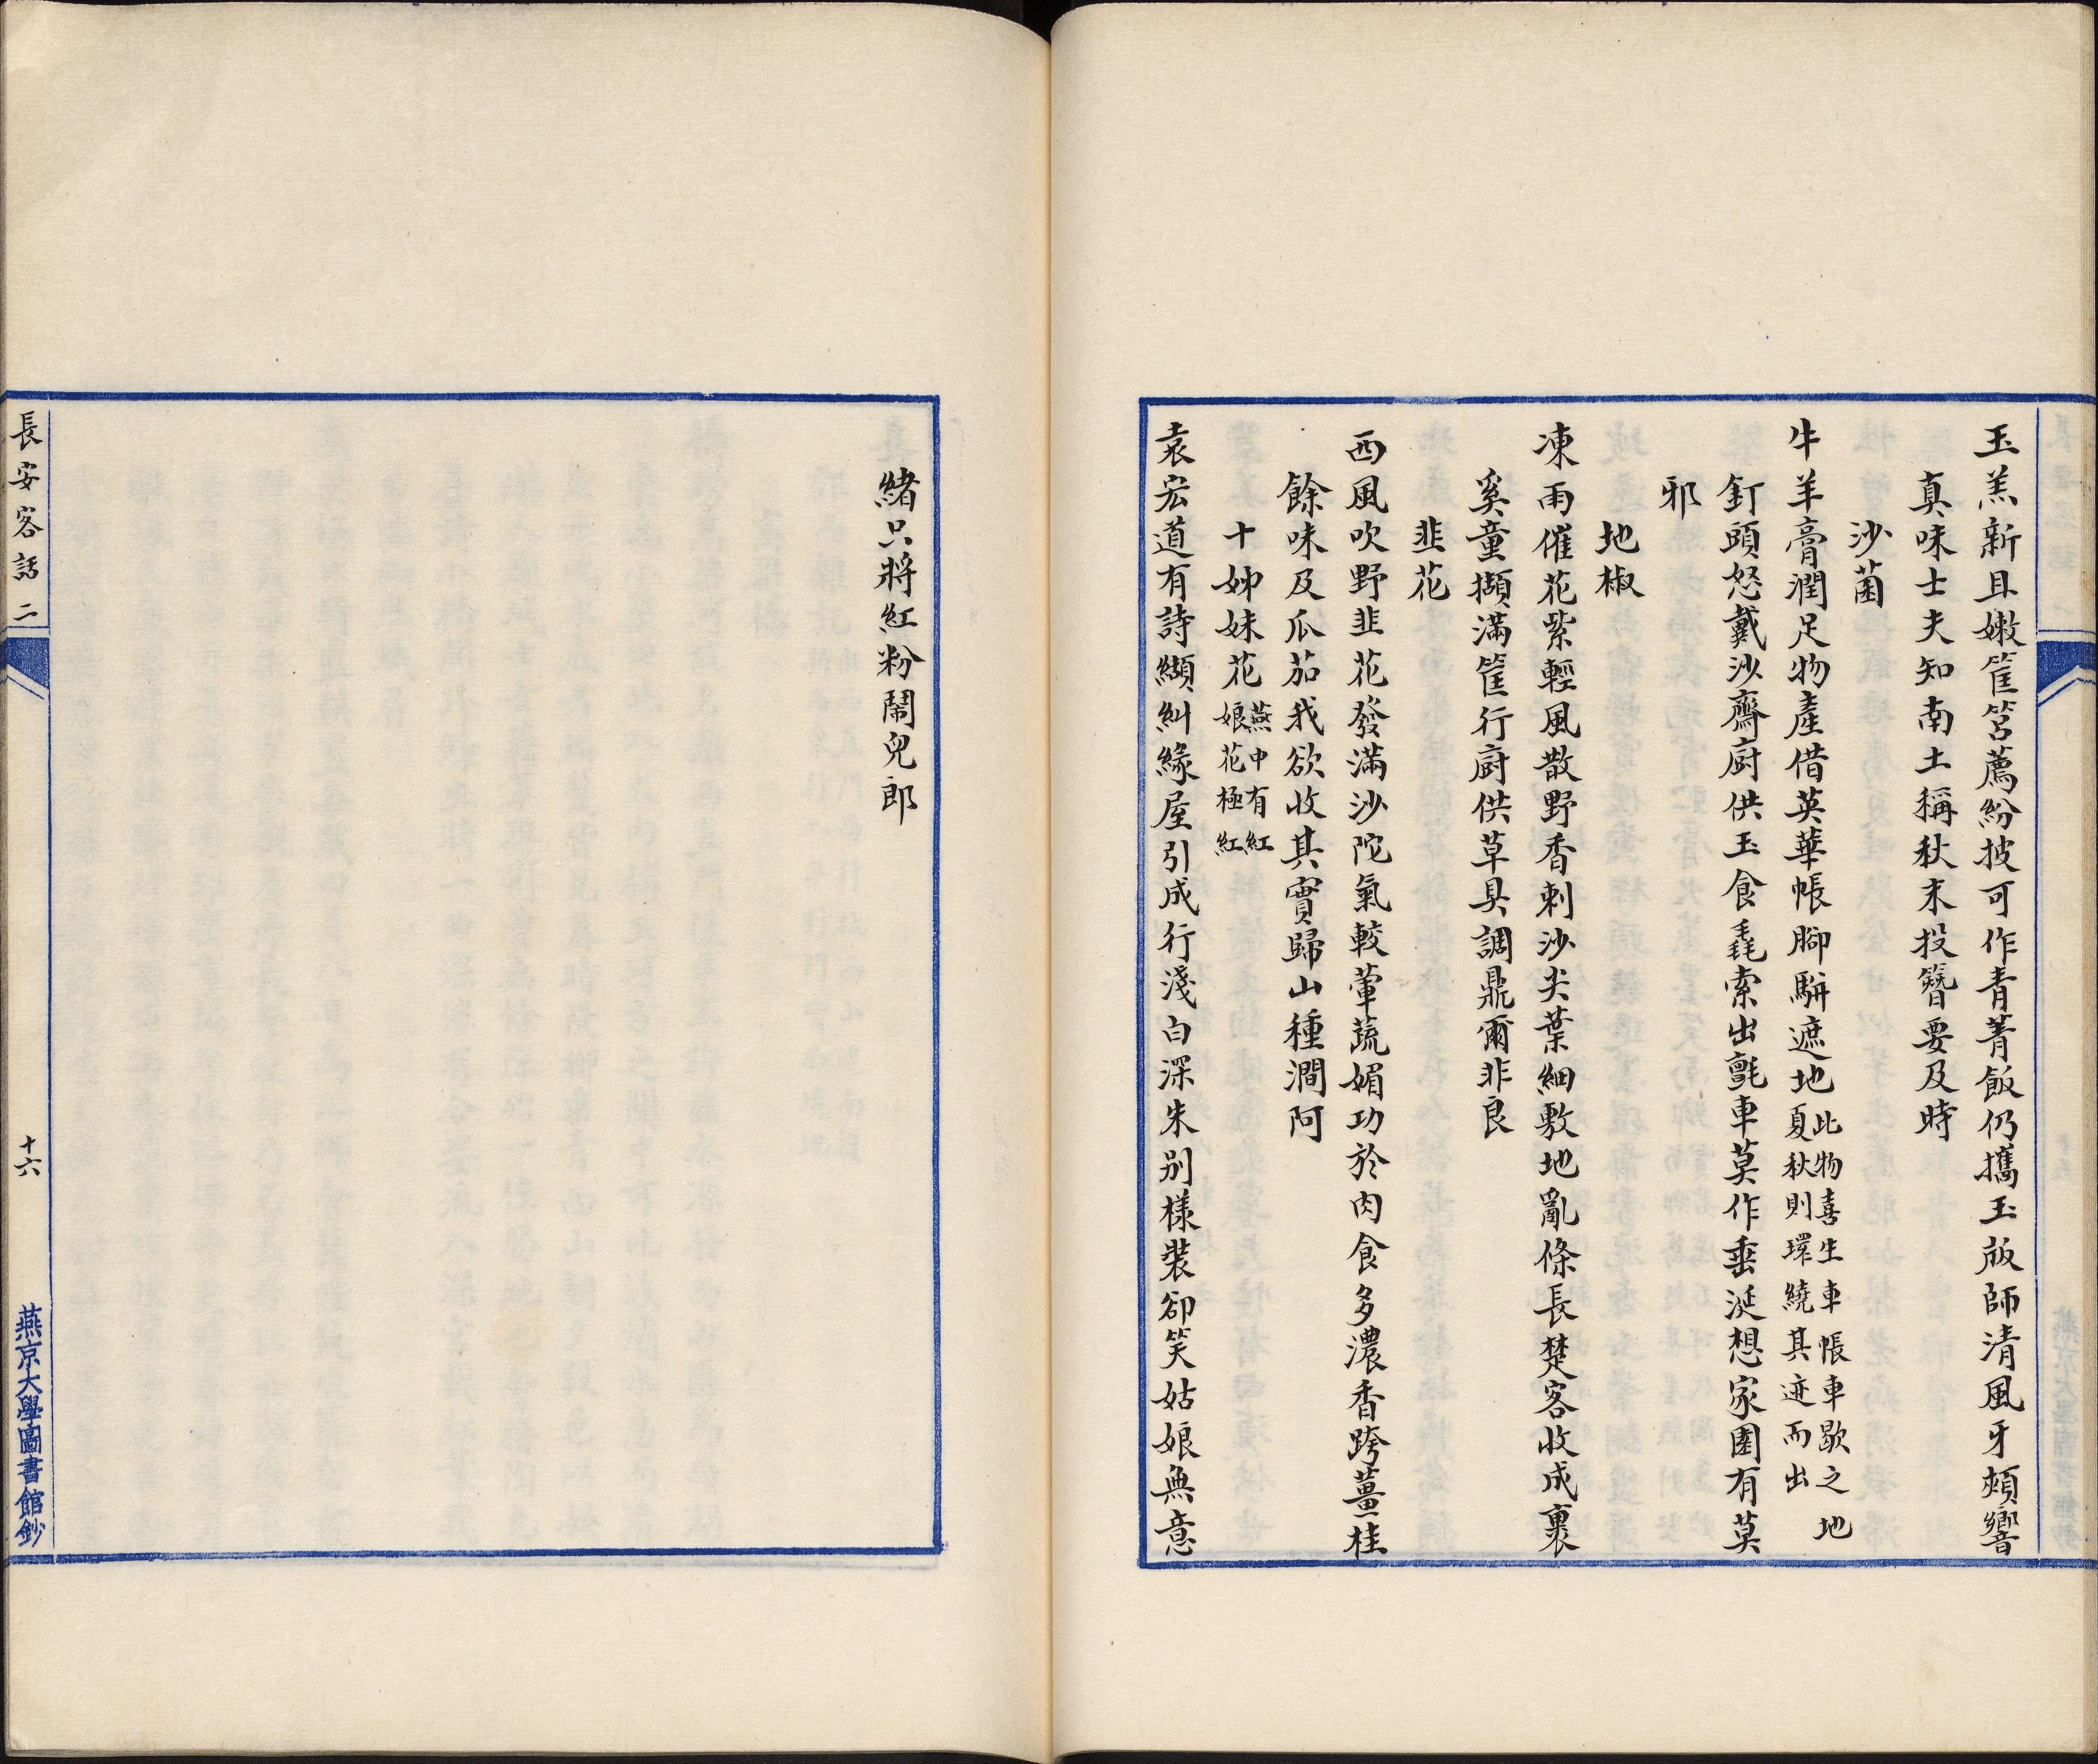 玉羔新且嫩筐筥薦紛披可作青菁飯仍攜玉版師清風牙頰響
真味士夫知南土稱秋末投簪要及時
沙菌
牛羊膏潤足物產借英華帳脚駢遮地此物喜生車帳車歇之地
夏秋則環繞其迹而出
釘頭怒戴沙齋厨供玉食毳索出氊車莫作垂涎想家園有莫
邪
地椒
凍雨催花紫輕風散野香刺沙尖葉細敷地亂條長楚客收成裹
奚童擷滿筐行厨供草具調鼎爾非良
韭花
西風吹野韭花發滿沙陀氣較葷蔬媚功於肉食多濃香跨薑桂
餘味及瓜茄我欲收其實歸山種澗阿
十姊妹花燕中有紅
娘花極紅
袁宏道有詩纈糾緣屋引成行淺白深朱别樣裝卻笑姑娘無意
緒只將紅粉鬧兒郎
長安客話 二
十六
燕京大學圖書館鈔